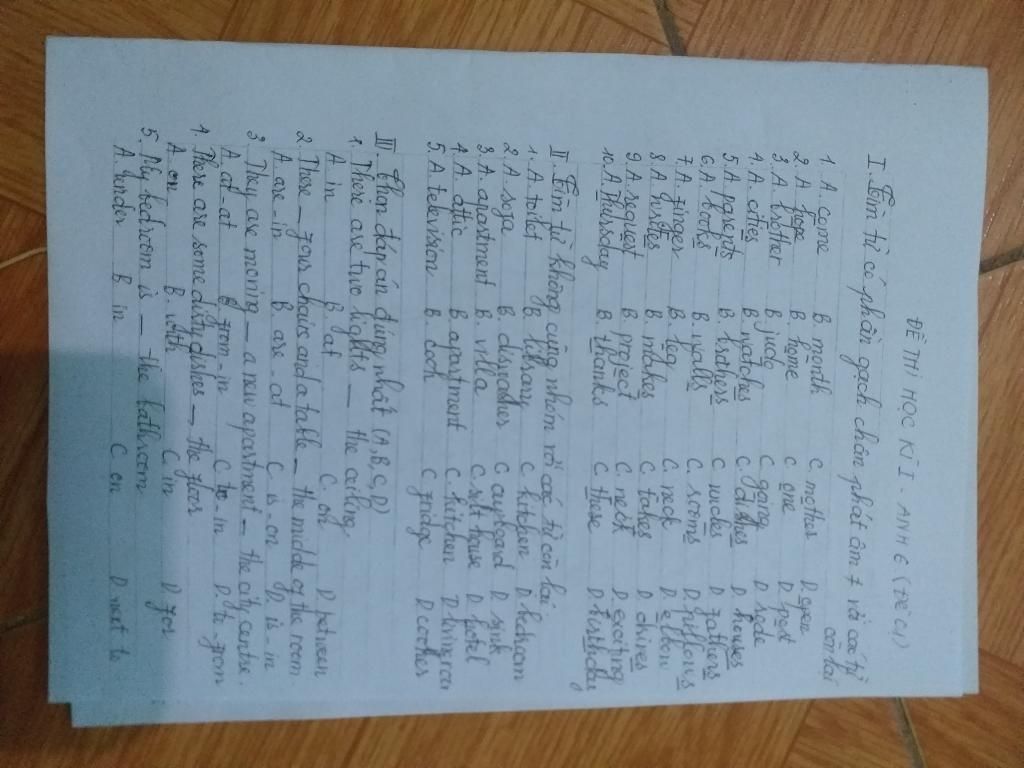 ĐỀ THI HỌC KÌ I - ANH 6 (ĐỀ C1)
I. Tìm từ có phần gạch chân phát âm ≠ với các từ
còn lại
1. A. come B. month C. mother D. open
2. A. hope B. home C. one D. post
3. A. brother B. judo C. going D. soda
4. A. cities B. watches C. dishes D. houses
5. A. parents B. brothers C. uncles D. fathers
6. A. books B. walls C. rooms D. pillows
7. A. finger B. leg C. neck D. elbow
8. A. brushes B. makes C. takes D. drives
9. A. request B. project C. neck D. exciting
10. A. Thursday B. thanks C. these D. birthday
II. Tìm từ không cùng nhóm với các từ còn lại
1. A. toilet B. library C. kitchen D. bedroom
2. A. sofa B. diswasher C. cupboard D. sink
3. A. apartment B. villa C. stilt house D. hotel
4. A. attic B. apartment C. kitchen D. living room
5. A. televison B. cook C. fridge D. cooker
III. Chọn đáp án đúng nhất (A, B, C, D)
1. There are two lights _ the ceiling.
A. in B. at C. on D. between
2. There _ four chairs and a table _ the middle of the room.
A. are - in B. are - at C. is - on D. is - in
3. They are moving _ a new apartment _ the city centre.
A. at - at B. from - in C. to - in D. to - from
4. There are some dirty dishes _ the floor
A. on B. with C. in D. for
5. My bedroom is _ the bathroom
A. under B. in C. on D. next to